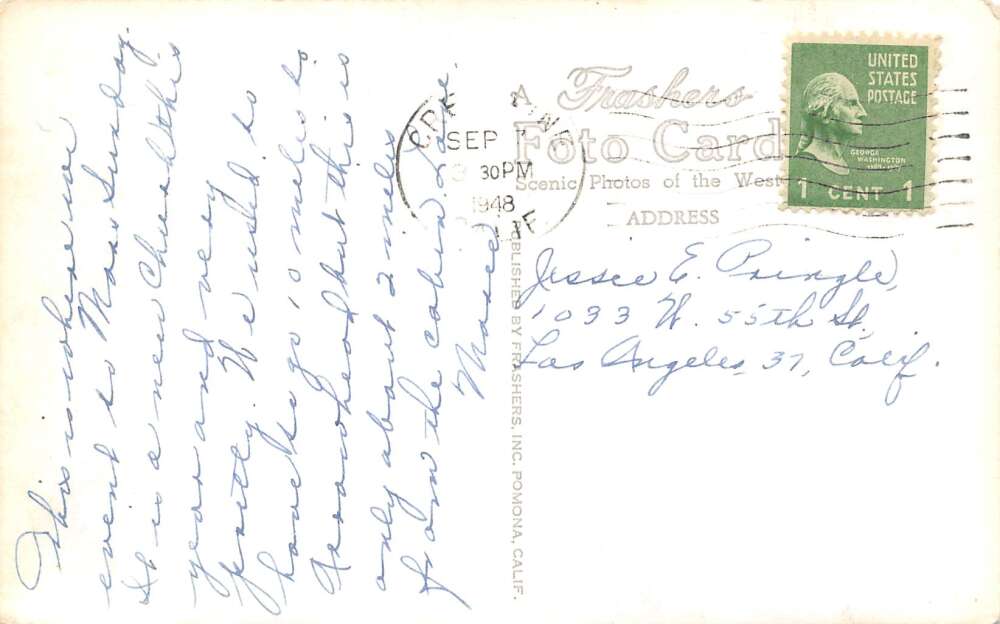 This is where we
went to Mass Sunday.
It is a new Church this
year and very
pretty. We used to
have to go 10 miles to
Arrowhead but this is
only about 2 miles
from the cabin. Love.
Marie
A Frashers
Foto Card
Scenic Photos of the West
ADDRESS
CREST LINE
SEP
30PM
1948
UNITED
STATES
POSTAGE
GEORGE
WASHINGTON
1 CENT 1
Jessie E. Pringle,
1033 W. 55th St.,
Los Angeles, 37, Calif.
PUBLISHED BY FRASHERS, INC. POMONA, CALIF.